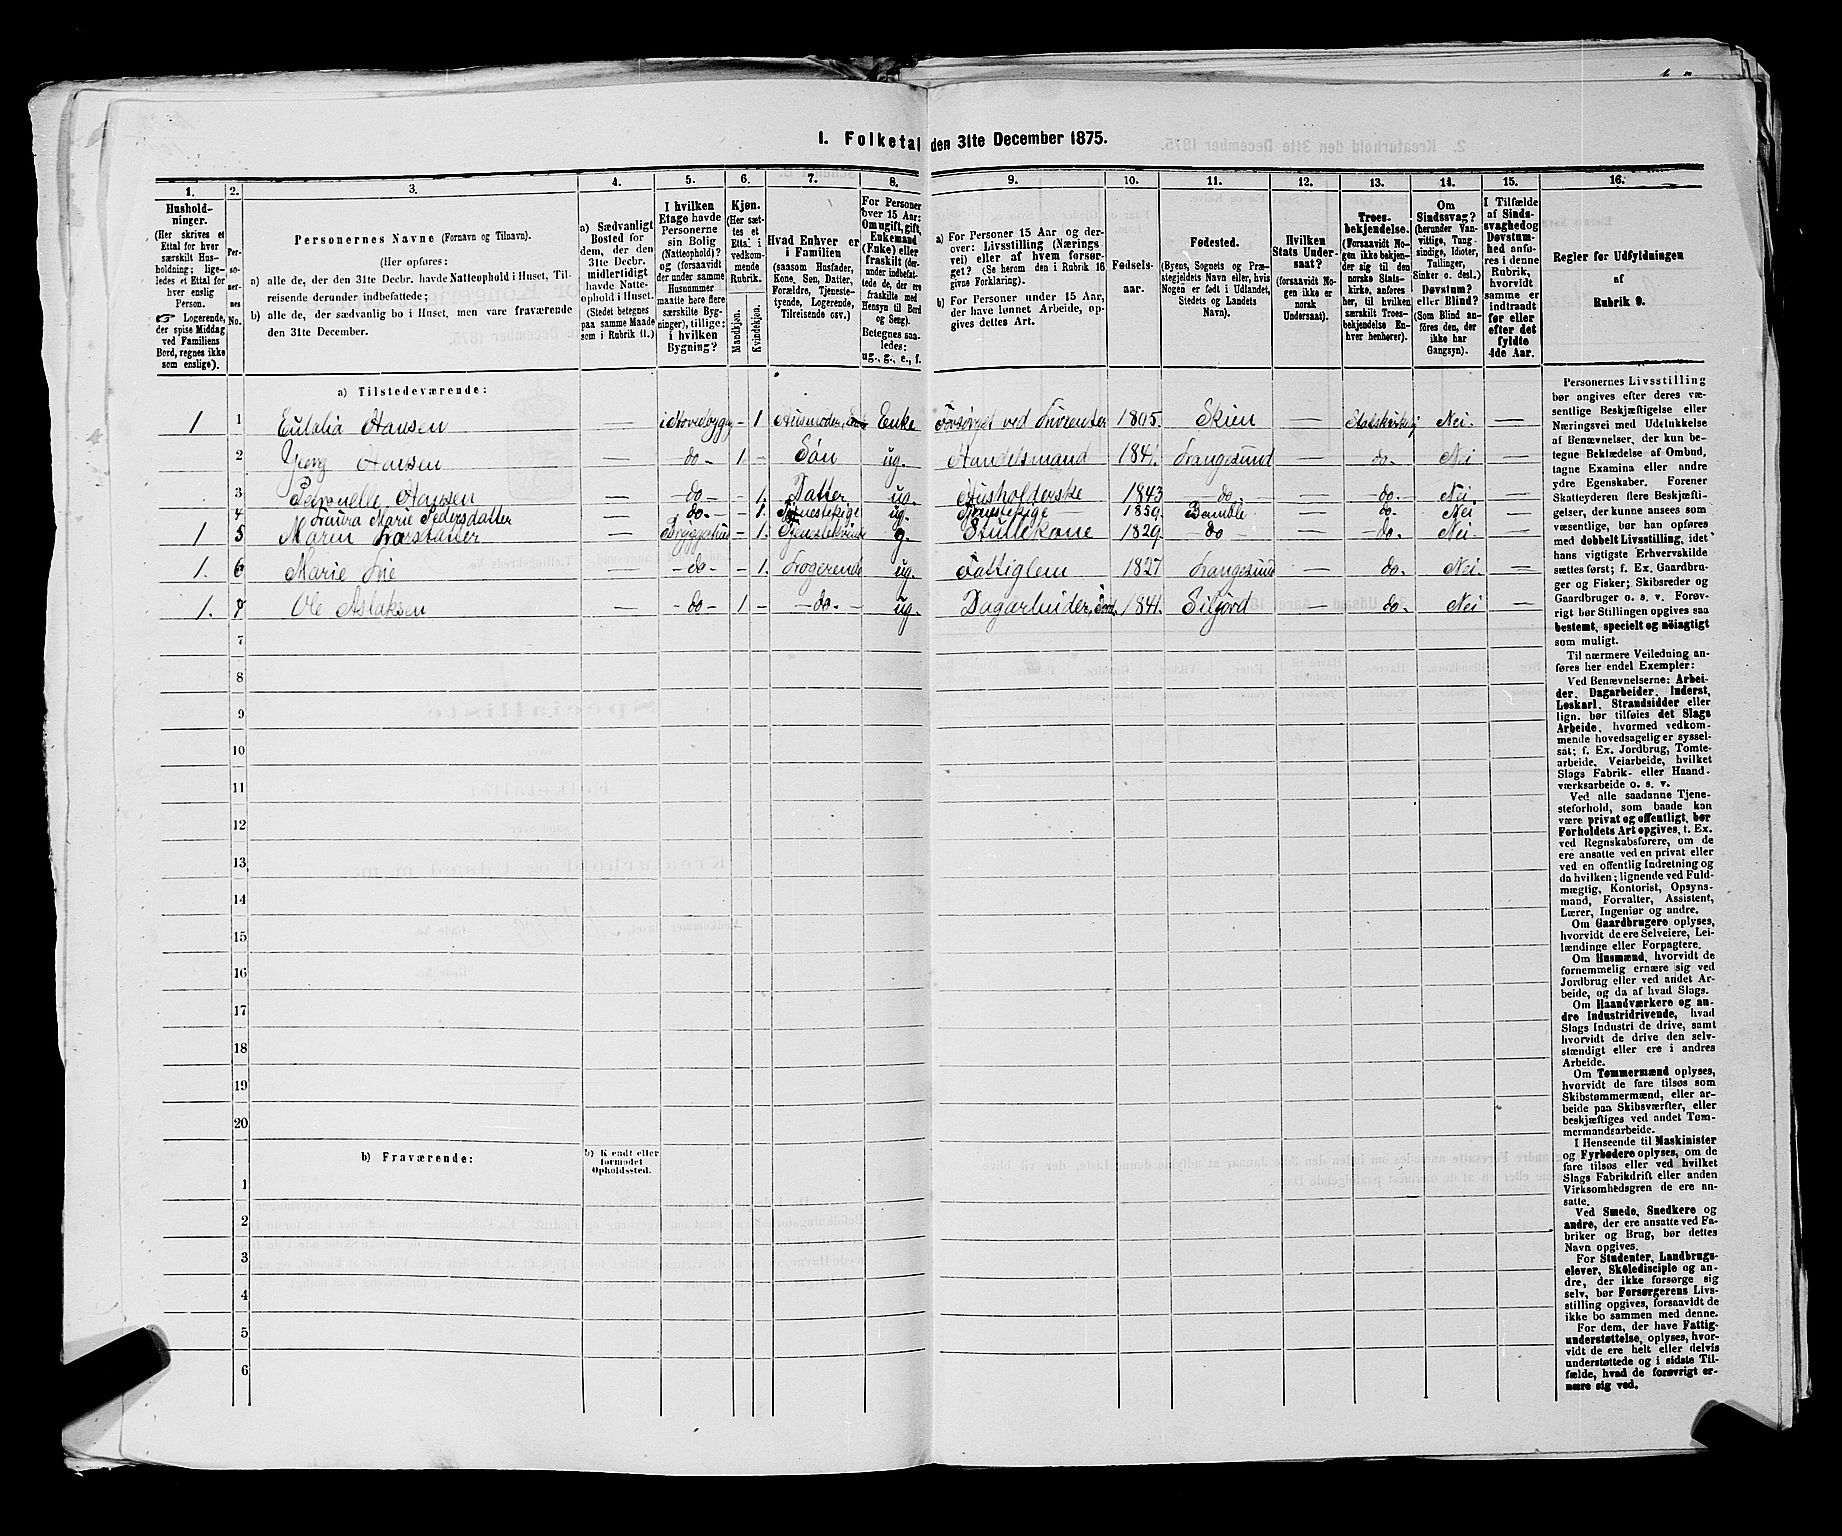 1. Folketal den 31te December 1875.
1. 2. 3. 4. 5. 6. 7. 8. 9. 10. 11. 12. 13. 14. 15. 16.
Hushold-
ninger.
(Her skrives et
Ettal for hver
særskilt Hus-
holdning; lige-
ledes et Ettal for
hver enslig
Person.
☞ Logerende,
der spise Middag
ved Familiens
Bord, regnes ikke
som enslige).
Per-
so-
ner-
nes
No.
Personernes Navne (Fornavn og Tilnavn).
(Her opføres:
a) alle de, der den 31te Decbr. havde Natteophold i Huset, Til-
reisende derunder indbefattede;
b) alle de, der sædvanlig bo i Huset, men vare fraværende
den 31te December.
a) Sædvanligt
Bosted for
dem, der den
31te Decbr.
midlertidigt
havde Natte-
ophold i Huset.
(Stedet betegnes
paa samme Maade
som i Rubrik 11.)
I hvilken
Etage havde
Personerne
sin Bolig
(Natteophold)?
og (forsaavidt
der under samme
Husnummer
maatte høre flere
særskilte Byg-
ninger), tillige:
i hvilken
Bygning?
Kjøn.
(Her sæt-
tes et
Ettal i
vedkom-
mende
Rubrik.
Mandkjøn.
Kvindekjøn.
Hvad Enhver er
i Familien
(saasom Husfader,
Kone, Søn, Datter,
Forældre, Tjeneste-
tyende, Logerende,
Tilreisende osv.)
For Personer
over 15 Aar:
Om ugift, gift,
Enkemand
(Enke) eller
fraskilt (der-
under indbefat-
tede de, der ere
fraskilte med
Hensyn til Bord
og Seng).
Betegnes saa-
ledes:
ug., g., e., f.
a) For Personer 15 Aar og der-
over: Livsstilling (Nærings-
vei) eller af hvem forsør-
get? (Se herom den i Rubrik 16
givne Forklaring).
b) For Personer under 15 Aar,
der have lønnet Arbeide, op-
gives dettes Art.
Fødsels-
aar.
Fødested.
(Byens, Sognets og Præ-
stegjeldets Navn eller, hvis
Nogen er født i Udlandet,
Stedets og Landets
Navn).
Hvilken
Stats Under-
saat?
(forsaavidt No-
gen ikke er
norsk
Undersaat).
Troes-
bekjendelse.
(Forsaavidt No-
gen ikke bekjen-
der sig til den
norske Stats-
kirke, anføres
her, til hvilken
særskilt Troes-
bekjendelse En-
hver henhører).
Om
Sindssvag?
(herunder Van-
vittige, Tung-
sindige, Idioter,
Tullinger,
Sinker o. desl.)
Døvstum?
eller Blind?
(Som Blind an-
føres den, der
ikke har
Gangsyn).
I Tilfælde
af Sinds-
svaghed og
Døvstum-
hed anfø-
res i denne
Rubrik,
hvorvidt
samme er
indtraadt
før eller
efter det
fyldte
4de Aar.
Regler for Udfyldningen
af
Rubrik 9.
a) Tilstedeværende:
1 1 Eulalia Hansen — i Hovedbygg. – 1 Husmoder, Enke Enke Forsørget ved Livrenter 1805. Skien — Statskirkelig Nei. —
2 Georg Hansen — do — 1. – Søn ug. Handelsmand 1841. Langesund — do. Nei —
3 Petronelle Hansen — do — – 1. Datter ug. Husholderske 1843 — do — — do. Nei. —
4 Laura Marie Pedersdatter — do. — – 1. Tjenestepige ug. Tjenestepige 1859. Bamble — do. Nei —
1 5 Maren Larsdatter — Bryggerhus – 1. g. 1829. — do — do. Nei. —
1. 6 Marie Lie — do — – 1. Logerende ug. Fattiglem 1827 Langesund — do. Nei. —
1. 7 Ole Aslaksen — do — 1 – — do. — ug. Dagarbeider, Jord. 1841. Siljord — do. Nei —
7
8
9
10
11
12
13
14
15
16
17
18
19
20
b) Fraværende:
b) Kjendt eller
formodet
Opholdssted.
1
2
3
4
5
6
Personernes Livsstilling
bør angives efter deres væ-
sentlige Beskjæftigelse eller
Næringsvei med Udelukkelse
af Benævnelser, der kun be-
tegne Beklædelse af Ombud,
tagne Examina eller andre
ydre Egenskaber. Forener
Skatteyderen flere Beskjæfti-
gelser, der kunne ansees som
væsentlige, bør han opføres
med dobbelt Livsstilling, idet
hans vigtigste Erhvervskilde
sættes først; f. Ex. Gaardbru-
ger og Fisker; Skibsreder og
Gaardbruger o. s. v. Forøv-
rigt bør Stillingen opgives saa
bestemt, specielt og nöiagtigt
som muligt.
Til nærmere Veiledning an-
føres her endel Exempler:
Ved Benævnelserne: Arbei-
der, Dagarbeider, Inderst,
Løskarl, Strandsidder eller
lign. bør tilføies det Slags
Arbeide, hvormed vedkom-
mende hovedsagelig er syssel-
sat; f. Ex. Jordbrug, Tomte-
arbeide, Veiarbeide, hvilket
Slags Fabrik- eller Haand-
værksarbeide o. s. v.
Ved alle saadanne Tjene-
steforhold, som baade kan
være privat og offentligt, bør
Forholdets Art opgives, t. Ex.
ved Regnskabsførere, om de
ere ansatte ved en privat eller
ved en offentlig Indretning og
da hvilken; lignende ved Fuld-
mægtig, Kontorist, Opsyns-
mand, Forvalter, Assistent,
Lærer, Ingeniør og andre.
Om Gaardbrugere oplyses,
hvorvidt de ere Selveiere, Lei-
lændinge eller Forpagtere.
Om Husmænd, hvorvidt de
fornemmelig ernære sig ved
Jordbrug eller ved andet Ar-
beide, og da af hvad Slags.
Om Haandværkere og an-
dre Industridrivende, hvad
Slags Industri de drive, samt
hvorvidt de drive den selv-
stændigt eller ere i andres
Arbeide.
Om Tømmermænd oplyses,
hvorvidt de fare tilsøs som
Skibstømmermænd, eller ar-
beide paa Skibsværfter, eller
beskjæftiges ved andet Tøm-
mermandsarbeide.
I Henseende til Maskinister
og Fyrbødere oplyses, om de
fare tilsøs eller ved hvilket
Slags Fabrikdrift eller anden
Virksomhedsgren de ere an-
satte.
Ved Smede, Snedkere og
andre, der ere ansatte ved Fa-
briker og Brug, bør dettes
Navn opgives.
For Studenter, Landbrugs-
elever, Skoledisciple og an-
dre, der ikke forsørge sig
selv, bør Forsørgerens Livs-
stilling opgives, forsaavidt de
ikke bo sammen med denne.
For dem, der have Fattig-
understøttelse, oplyses, hvor-
vidt de ere helt eller delvis
understøttede og i sidste Til-
fælde, hvad de forøvrigt er-
nære sig ved.